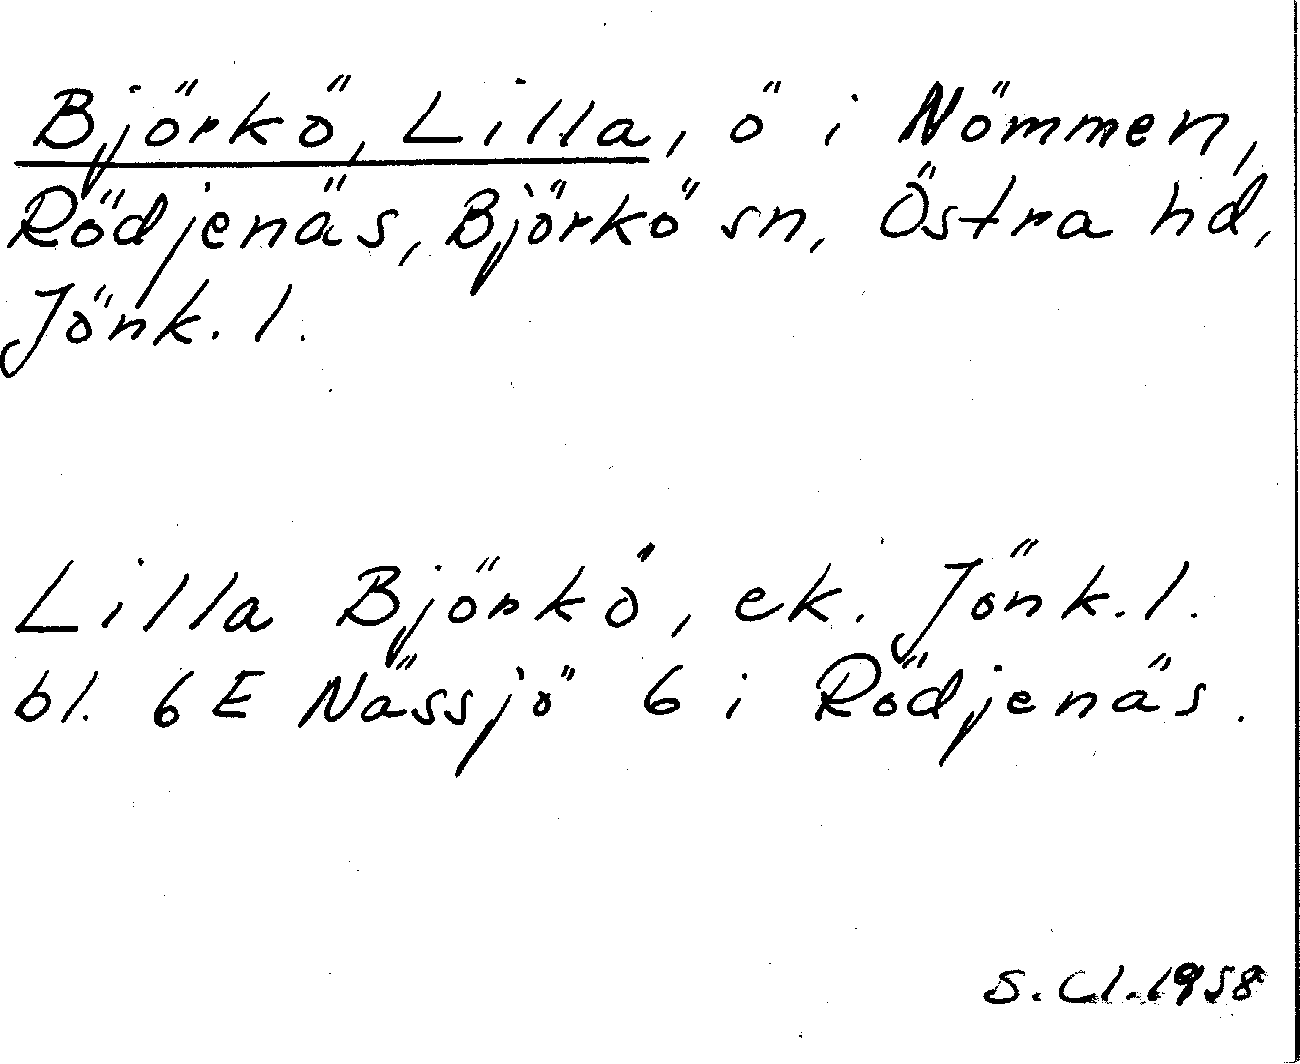 Björkö, Lilla, ö i Nömmen,
Rödjenäs, Björkö sn, Östra hd,
Jönk. l.
Lilla Björkö, ek. Jönk. l.
bl. 6 E Nässjö 6 i Rödjenäs.
S. Cl. 1958